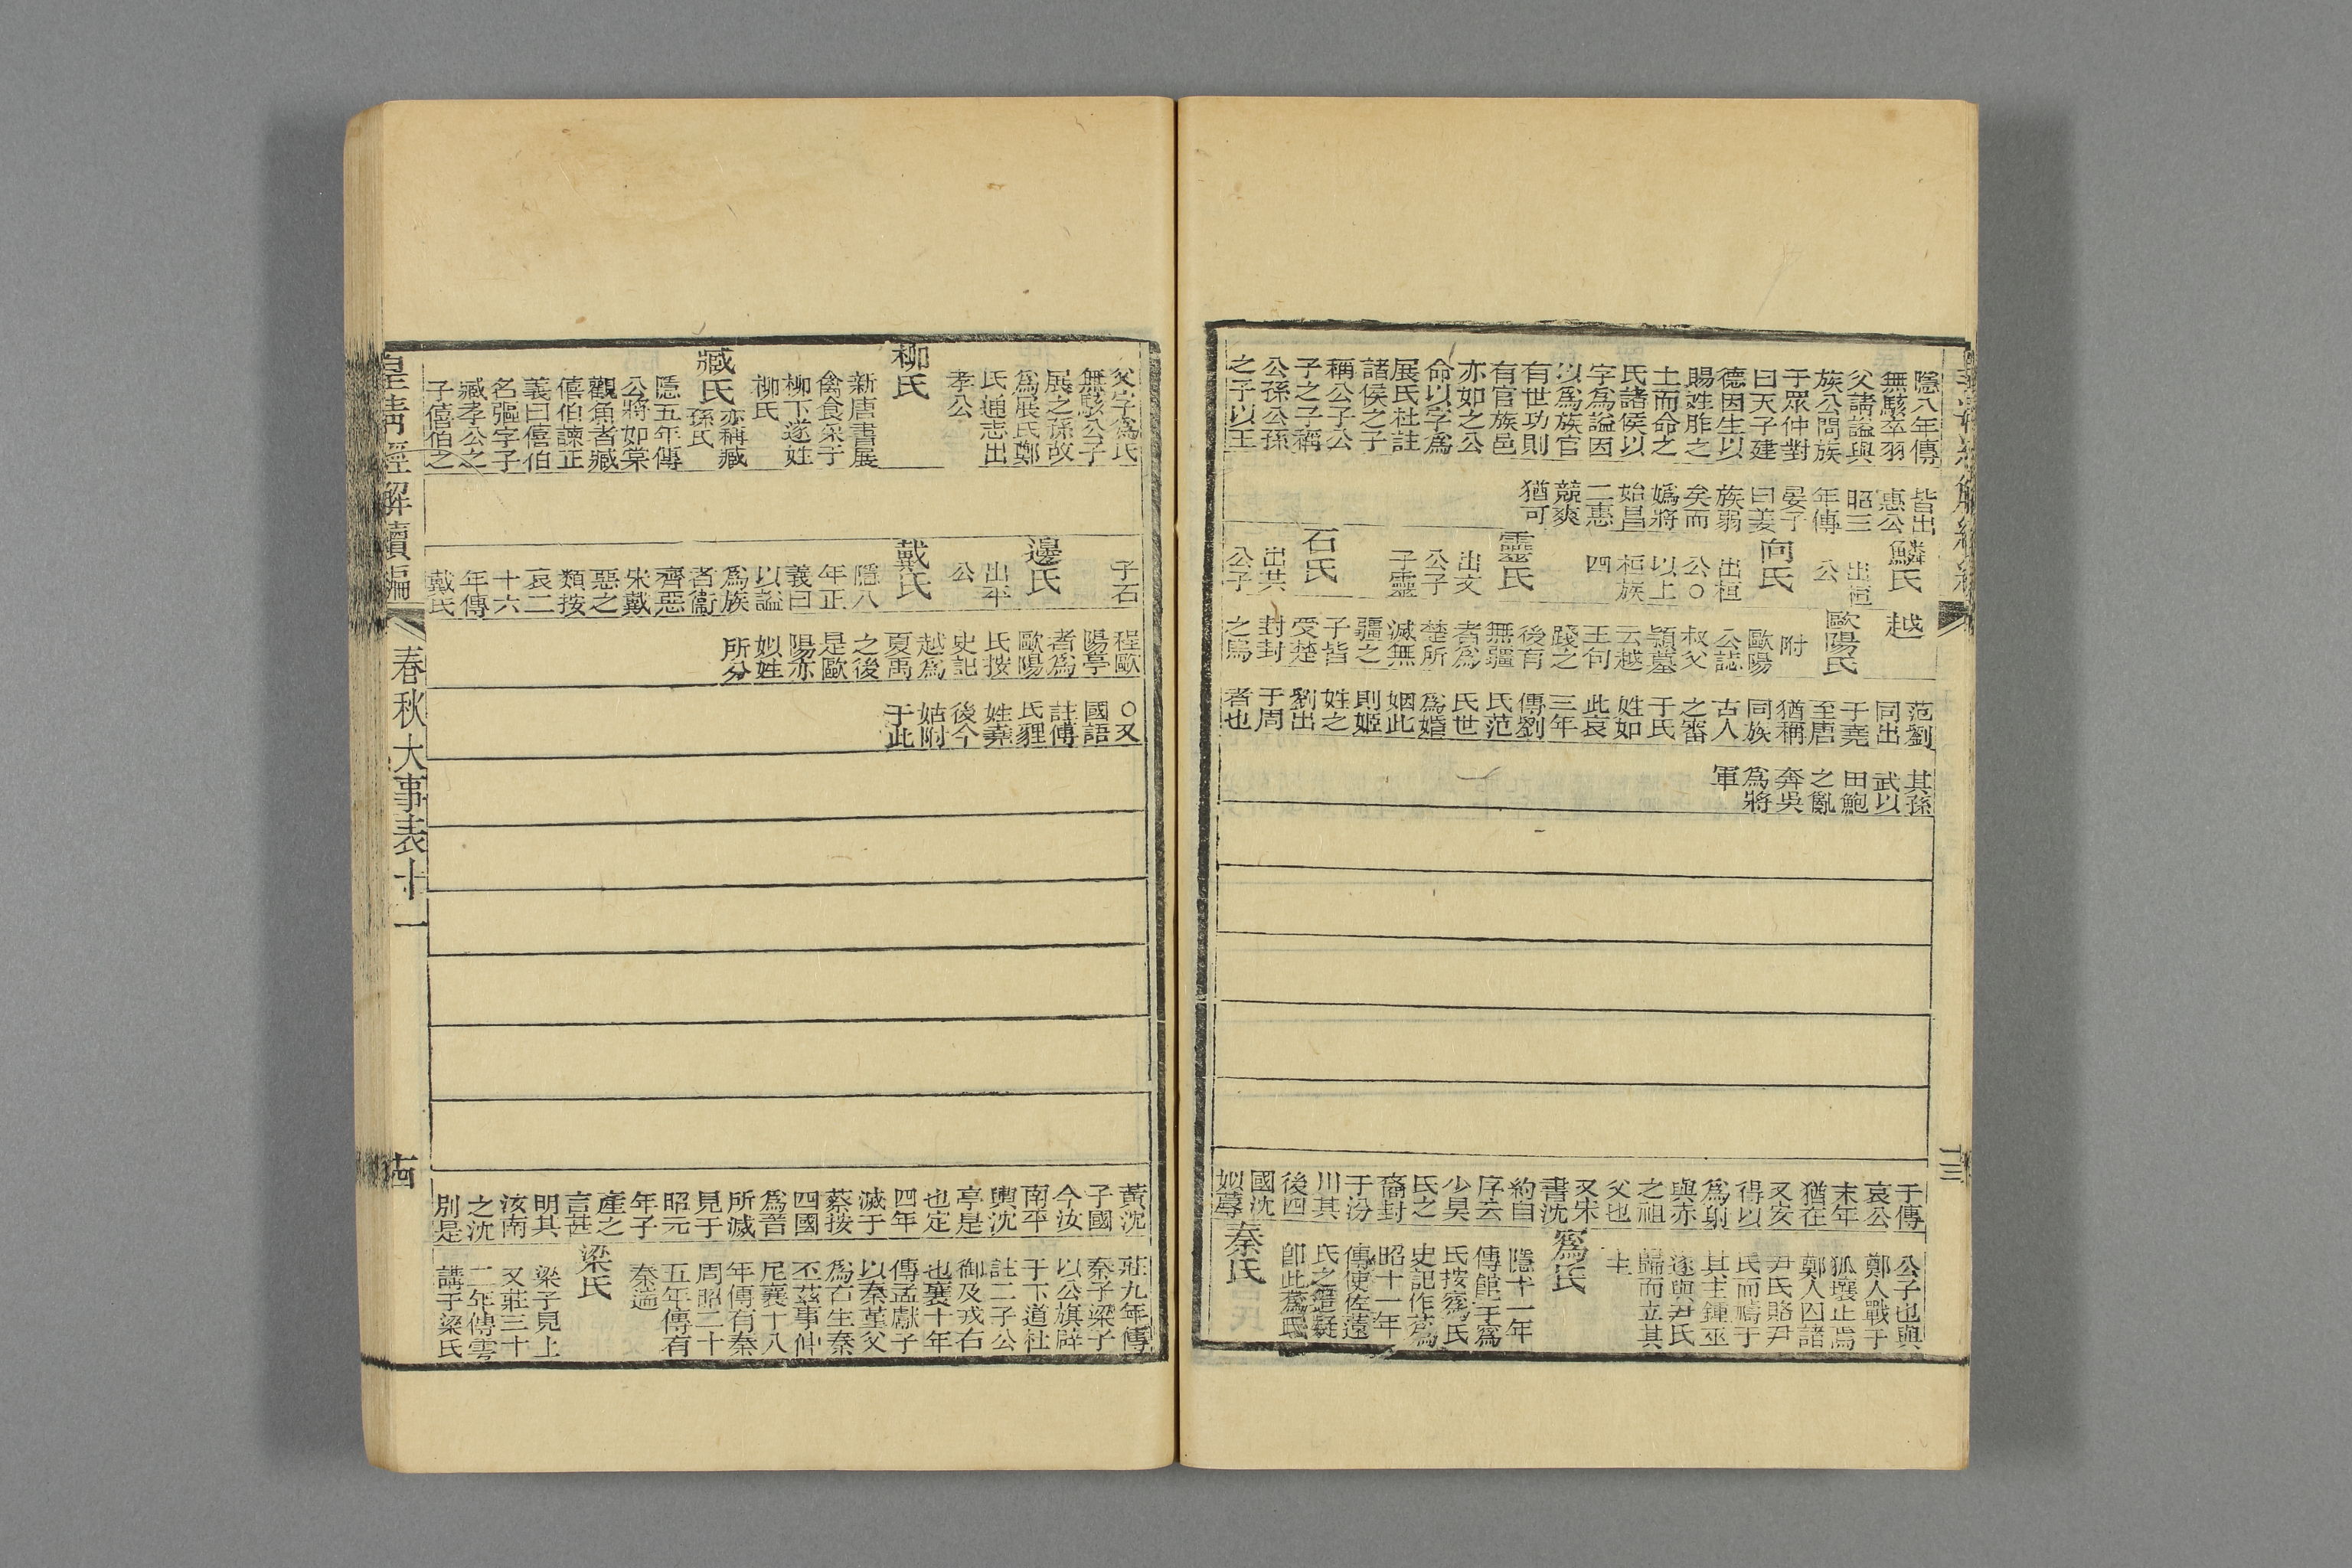 隱八年傳
無駭卒羽
父請謚與
族公問族
于眾仲對
曰天子建
德因生以
賜姓胙之
土而命之
氏諸侯以
字為謚因
以為族官
有世功則
有官族邑
亦如之公
命以字為
展氏杜註
諸侯之子
稱公子公
子之子稱
公孫公孫
之子以王
皆出
惠公
昭三
年傳
晏子
曰姜
族弱
矣而
媯將
始昌
二惠
競爽
猶可
鱗氏
出桓
公
向氏
出桓
公○
以上
桓族
四
靈氏
出文
公子
子靈
石氏
出共
公子
越
歐陽氏
附
歐陽
公誌
叔父
潁墓
云越
王句
踐之
後有
無疆
者為
楚所
滅無
疆之
子皆
受楚
封封
之烏
范劉
同出
于堯
至唐
猶稱
同族
古人
之審
于氏
姓如
此哀
三年
傳劉
氏范
氏世
為婚
姻此
則姬
姓之
劉出
于周
者也
其孫
武以
田鮑
之亂
奔吳
為將
軍
于傳
哀公
末年
猶在
又安
得以
為射
與赤
之祖
父也
又宋
書沈
約自
序云
少昊
氏之
裔封
于汾
川其
後四
國沈
姒蓐
公子也與
鄭人戰于
狐壤止焉
鄭人囚諸
尹氏賂尹
氏而禱于
其主鍾巫
遂與尹氏
歸而立其
主
寪氏
隱十一年
傳館于寪
氏按寪氏
史記作蒍
昭十一年
傳使佐薳
氏之簉疑
卽此蒍氏
秦氏
十三
父字為氏
無駭公子
展之孫故
為展氏鄭
氏通志出
孝公
柳氏
新唐書展
禽食采于
柳下遂姓
柳氏
臧氏
亦稱臧
孫氏
隱五年傳
公將如棠
觀魚者臧
僖伯諫正
義曰僖伯
名彄字子
臧孝公之
子僖伯之
子石
邊氏
出平
公
戴氏
隱八
年正
義曰
以謚
為族
者衞
齊惡
宋戴
惡之
類按
哀二
十六
年傳
戴氏
程歐
陽亭
者為
歐陽
氏按
史記
越為
夏禹
之後
是歐
陽亦
姒姓
所分
○又
國語
註傅
氏貍
姓堯
後今
姑附
于此
黃沈
子國
今汝
南平
輿沈
亭是
也定
四年
滅于
蔡按
四國
為晉
所滅
見于
昭元
年子
產之
言甚
明其
汝南
之沈
別是
莊九年傳
秦子梁子
以公旗辟
于下道杜
註二子公
御及戎右
也襄十年
傳孟獻子
以秦堇父
為右生秦
丕茲事仲
尼襄十八
年傳有秦
周昭二十
五年傳有
秦遄
梁氏
梁子見上
又莊三十
二年傳雩
講于梁氏
皇清經解續編
春秋大事表十一
十四